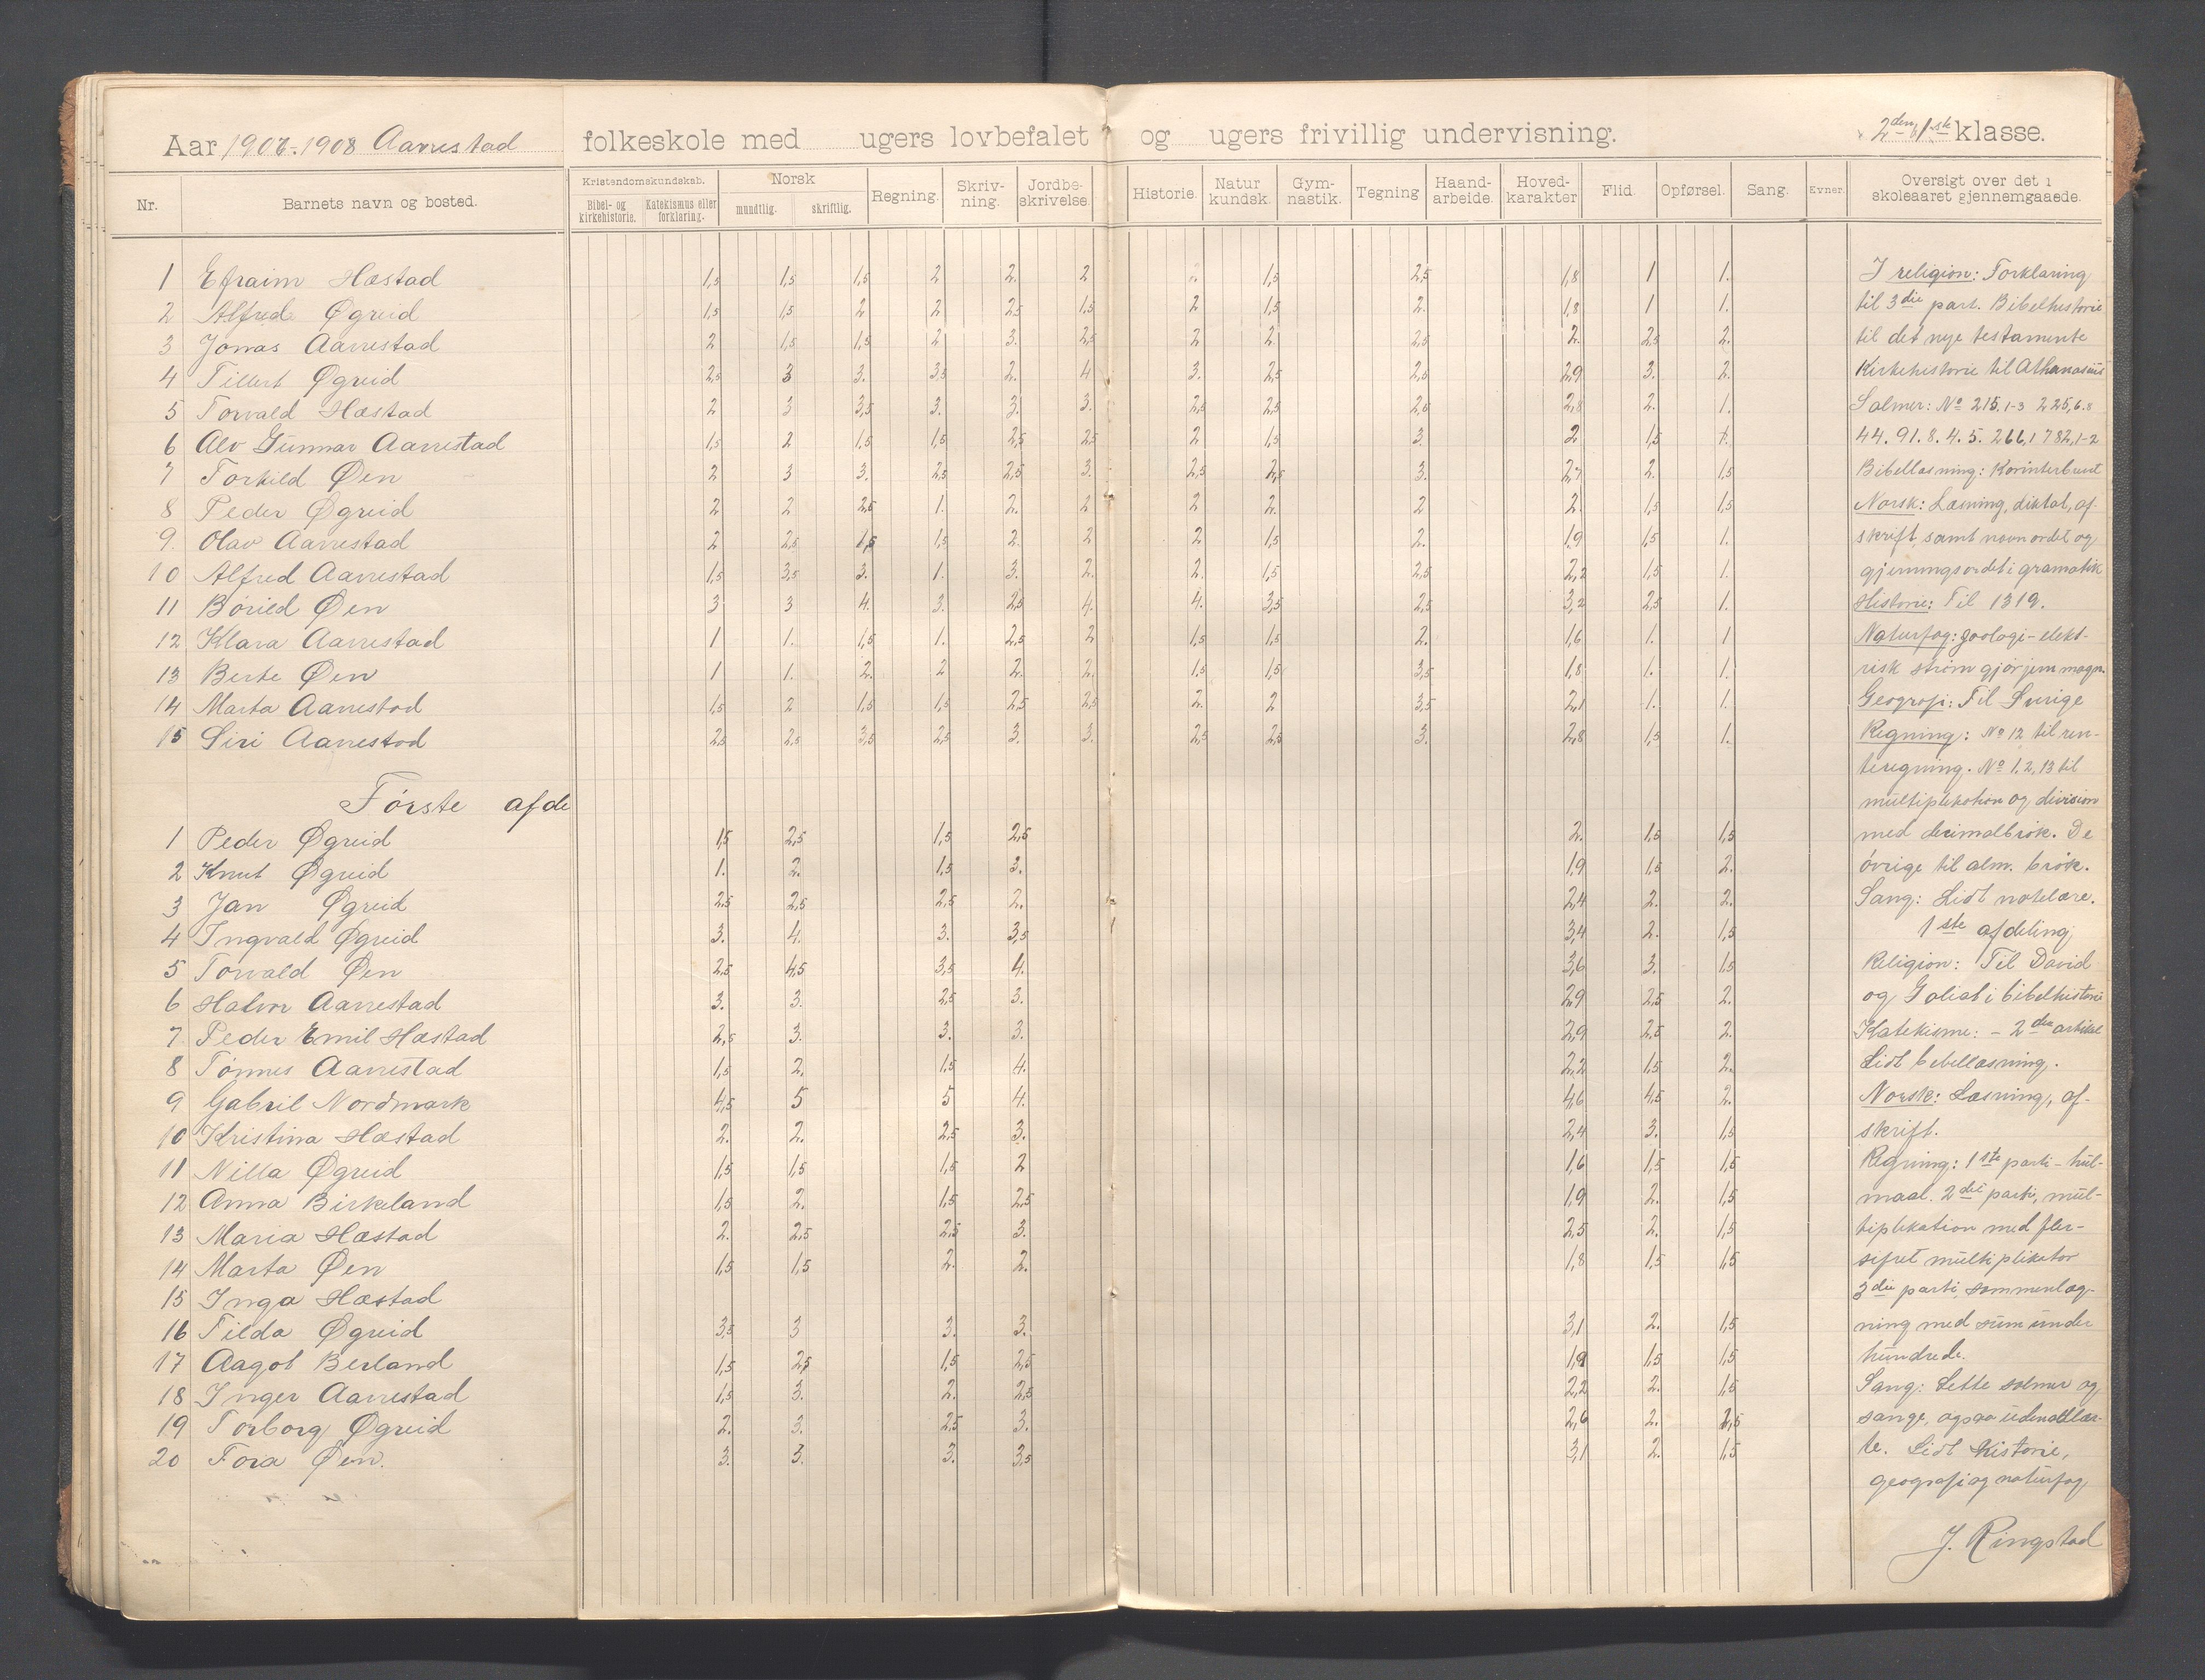 Aar 1907-1908 Aarrestad folkeskole med ugers lovbefalet og ugers frivillig undervisning. 2den 1ste klasse.
Nr. Barnets navn og bosted. Kristendomskundskab. Bibel- og kirkehistorie. Katekismus eller forklaring. Norsk mundtlig. skriftlig. Regning. Skriv-ning. Jordbe-skrivelse. Historie. Natur kundsk. Gym-nastik. Tegning Haand-arbeide. Hoved-karakter Flid. Opførsel. Sang. Evner. Oversigt over det i skoleaaret gjennemgaaede.
1 Efraim Hæstad 1,5 1,5 1,5 2 2. 2 2 1,5 2,5 1,8 1 1.
2 Alfred Øgreid 1,5 1,5 2 2 2,5 1,5 2 1,5 2. 1,8 1 1.
3 Jonas Aarrestad 2 1,5 1,5 2 3. 2,5 2 2. 2,5 2. 2,5 2.
4 Tillert Øgreid 2,5 3 3. 3,5 2. 4 3. 2,5 2,5 2,9 3. 2.
5 Torvald Hæstad 2 3 3,5 3. 3. 3. 2,5 2,5 2,5 2,8 2. 1.
6 Alv Gunnar Aarrestad 1,5 2 1,5 1,5 2,5 2,5 2 1,5 3. 2 1,5 1.
7 Torkild Øen 2 3 3. 2,5 2,5 3. 2,5 2,5 3. 2,7 2. 1,5
8 Peder Øgreid 2 2 2,5 1. 2. 2 2 2. 2 2. 1,5 1,5
9. Olav Aarrestad 2 2,5 1,5 1,5 2. 2 2 1,5 2. 1,9 1,5 1.
10 Alfred Aarrestad 1,5 3,5 3. 1. 3. 2. 2. 1,5 2,5 2,2 1,5 1.
11 Børild Øen 3 3 4. 3. 2,5 4. 4. 3,5 2,5 3,2 2,5 1.
12 Klara Aarrestad 1 1. 1,5 1. 2,5 2 1,5 1,5 2. 1,6 1. 1
13 Berte Øen 1 1. 2. 2 2. 2. 1,5 1,5 3,5 1,8 1. 1.
14 Marta Aarrestad 1,5 2 1,5 1,5 2,5 2,5 2. 2 3,5 2,1 1. 1.
15 Siri Aarrestad 2,5 2,5 3,5 2,5 3. 3. 2,5 2,5 3. 2,8 1,5 1.
Første afde
1 Peder Øgreid 1,5 2,5 1,5 2,5 2. 1,5 1,5
2 Knut Øgreid 1. 2. 1,5 3. 1,9 1,5 2.
3 Jan Øgreid 2,5 2,5 2,5 2. 2,4 2. 2.
4 Ingvald Øgreid 3. 4. 3. 3,5 3,4 2. 1,5
5 Torvald Øen 2,5 4,5 3,5 4. 3,6 3. 1,5
6 Halvor Aarrestad 3. 3. 2,5 3. 2,9 2,5 2.
7. Peder Emil Hæstad 2,5 3. 3. 3. 2,9 2,5 2.
8 Tønnes Aarrestad 1,5 2. 1,5 4. 2,2 1,5 2.
9 Gabril Nordmark 4,5 5 5 4. 4,6 4,5 2.
10 Kristina Hæstad 2. 2. 2,5 3. 2,4 3. 1,5
11 Nilla Øgreid 1,5 1,5 1,5 2 1,6 1,5 1,5
12 Anna Birkeland 1,5 2. 1,5 2,5 1,9 2. 1,5
13 Maria Hæstad 2. 2,5 2,5 3. 2,5 2. 1,5
14 Marta Øen 1,5 1,5 2. 2. 1,8 1,5 1,5
15 Inga Hæstad
16 Tilda Øgreid 3,5 3 3. 3. 3,1 2. 1,5
17 Aagot Berland 1,5 2,5 1,5 2,5 1,9 1,5 1,5
18 Inger Aarrestad 1,5 3. 2. 2,5 2,2 2. 1,5
19 Torborg Øgreid 2. 3. 2,5 3. 2,6 2. 1,5
20 Tora Øen. 3. 3. 3. 3,5 3,1 2. 1,5
I religion: Forklaring
til 3die part. Bibelhistorie
til det nye testamente
Kirkehistorie til Athanasius
Salmer: No 215. 1-3 225,6.8
44. 91. 8. 4. 5. 266,1 782,1-2
Bibellæsning: Korinterbrevet
Norsk: Læsning, diktat, af-
skrift samt navnordet og
gjerningsordet i gramatik
Historie: Til 1319.
Naturfag: zoologi - elekt-
risk strøm gjør jern magn.
Geografi: Til Sverige
Regning: No 12 til ren-
teregning. No 1, 2, 13 til
multiplikation og division
med decimalbrøk. De
øvrige til alm. brøk.
Sang: Lidt notelære.
1ste afdeling
Religion: Til David
og Goliat i bibelhistorie
Katekisme: - 2den artikel
Lidt bibellæsning.
Norsk: Læsning, af-
skrift.
Regning: 1ste parti - hul-
maal. 2det parti, mul-
tiplikation med fler-
sifret multiplikator
3die parti, sammenlæg-
ning med sum under
hundrede.
Sang: Lette salmer og
sange, ogsaa udenadlær-
te. Lidt historie,
geografi og naturfag
J. Ringstad